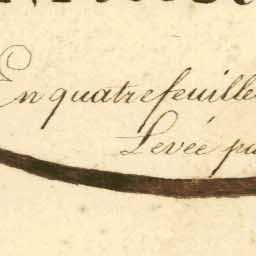 En quatre feuille
Levée pa